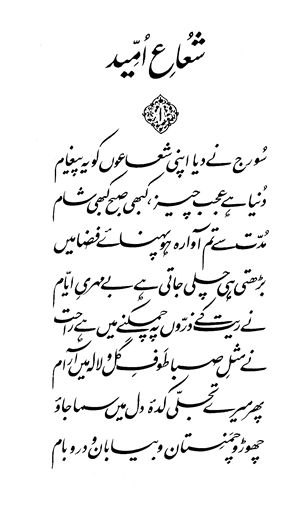 شعاعِ اُمّید
۱
سُورج نے دیا اپنی شعاعوں کو یہ پیغام
دُنیا ہے عجب چیز، کبھی صبح کبھی شام
مدّت سے تم آوارہ ہو پہنائے فضا میں
بڑھتی ہی چلی جاتی ہے بے مہریِ ایّام
نے ریت کے ذرّوں پہ چمکنے میں ہے راحت
نے مثلِ صبا طوفِ گل و لالہ میں آرام
پھر میرے تجلّی کدۂ دل میں سما جاؤ
چھوڑو چمنستان و بیابان و در و بام